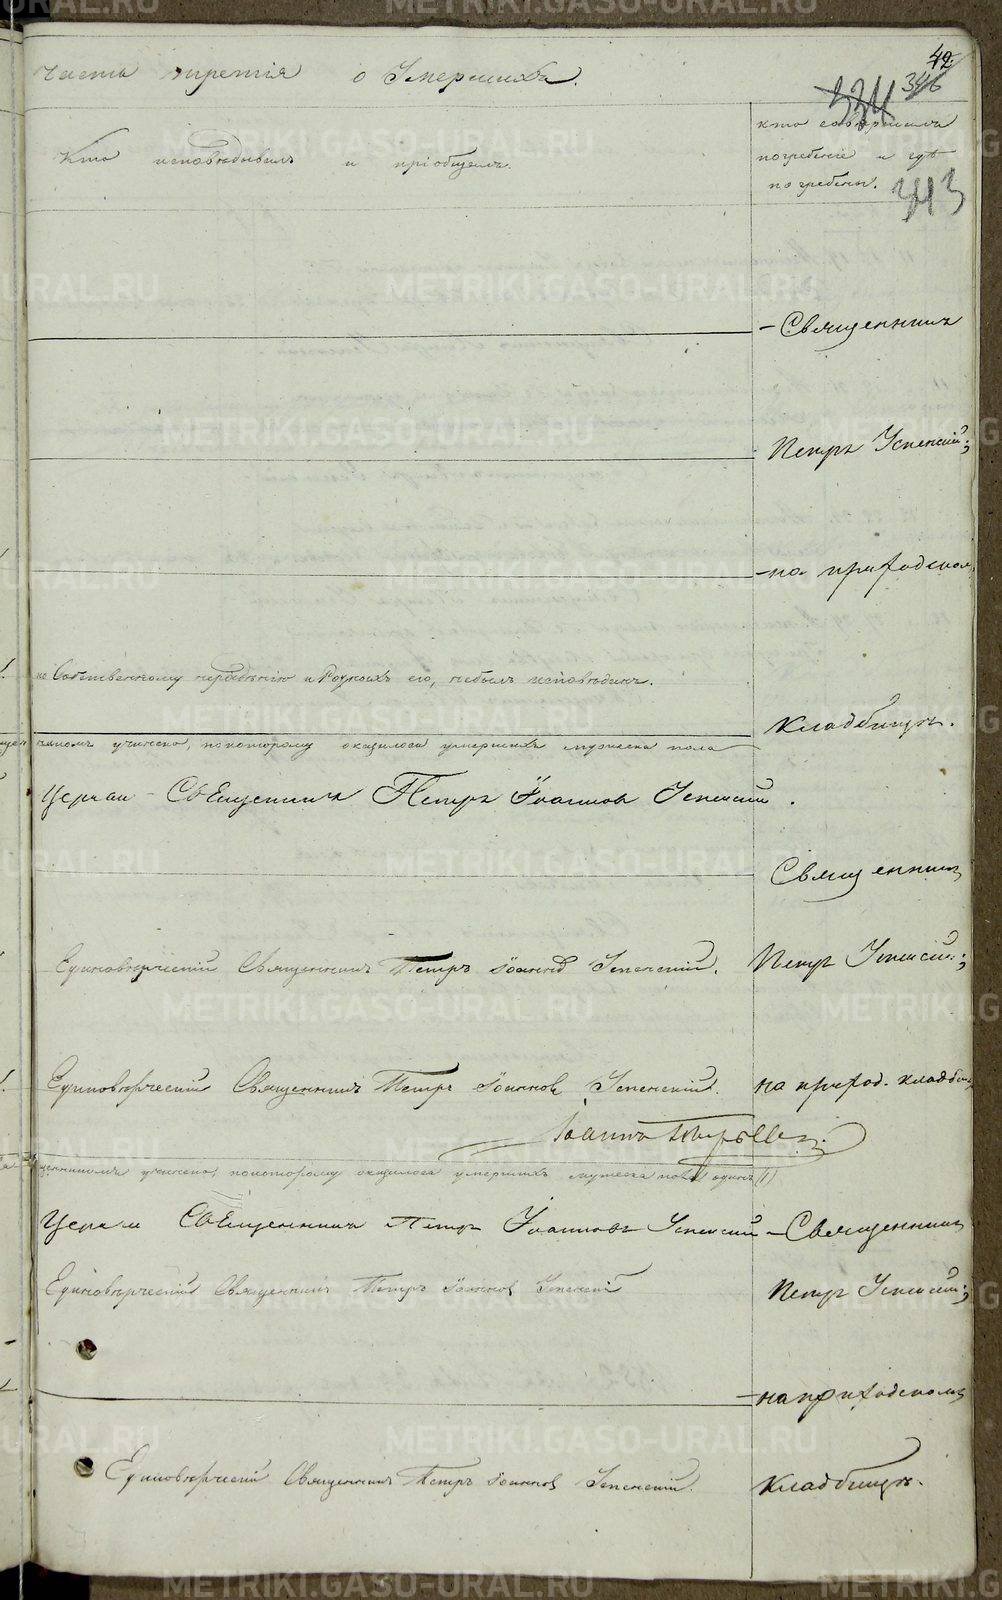 42
346
334
часть третія о Умершихъ.
Кто исповѣдывалъ и пріобщалъ.
кто совершалъ
погребеніе и гдѣ
погребены.
343
Священникъ
Петръ Успенскій;
на приходскомъ
по Собственному нерадѣнію и Родныхъ его, небылъ исповѣданъ.
кладбищѣ.
учинено, покоторому оказалося умершихъ мужеска пола
Церкви Священникъ Петръ Іоанновъ Успенскій.
Священникъ
Единовѣрческій Священникъ Петръ Іоанновъ Успенскій.
Петръ Успенскій;
Единовѣрческій Священникъ Петръ Іоанновъ Успенскій.
на приход. кладбищ
Іоаннъ
учинено, покоторому оказалося умершихъ мужеска пола одинъ (1)
Церкви Священникъ Петръ Іоанновъ Успенскій
Священникъ
Единовѣрческій Священникъ Петръ Іоанновъ Успенскій
Петръ Успенскій;
на приходскомъ
Единовѣрческій Священникъ Петръ Іоанновъ Успенскій.
кладбищѣ.
METRIKI.GASO-URAL.RU